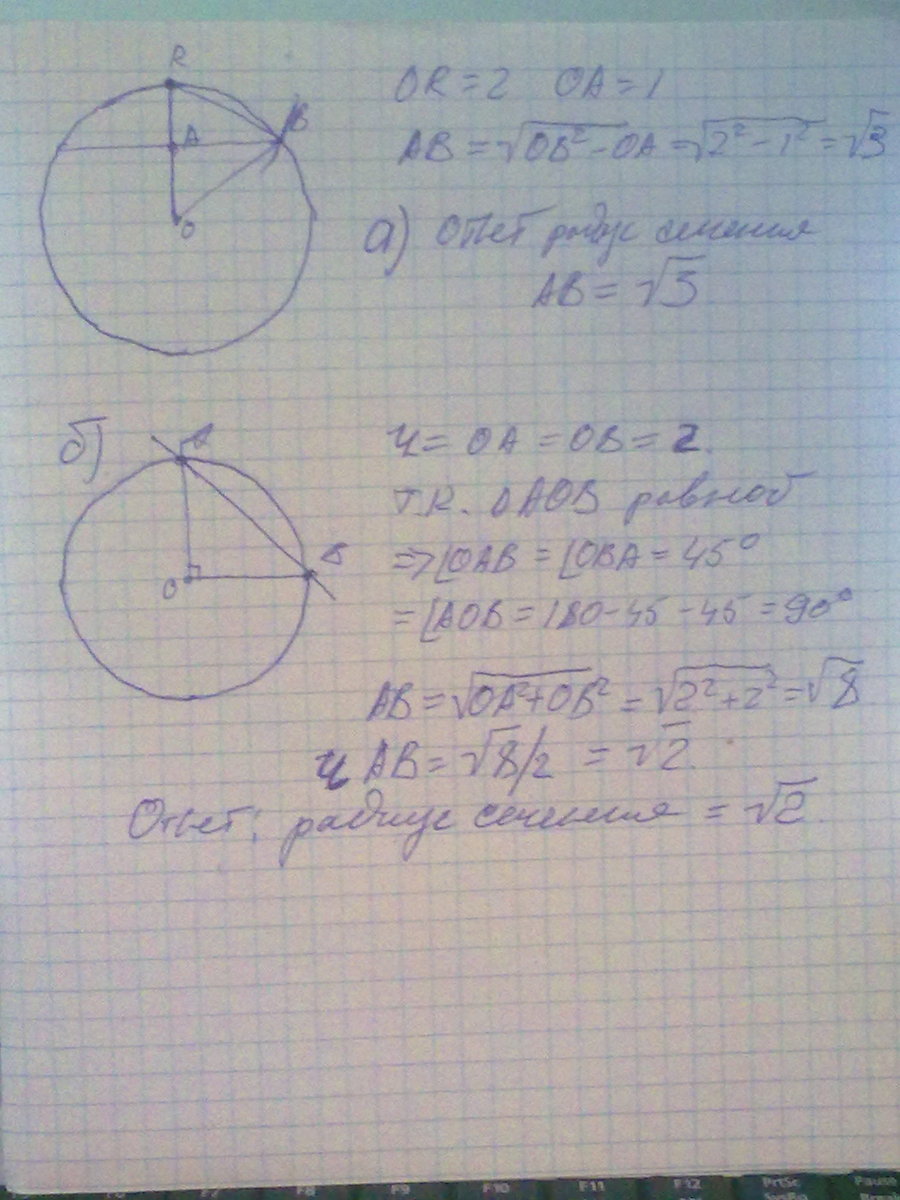 R
A
B
O
OR = 2 OA = 1
AB = √OB² - OA = √2² - 1² = √3
а) Ответ радиус сечения
AB = √3
б)
O
r = OA = OB = 2.
Т.к. ΔAOB равноб
=> ∠OAB = ∠OBA = 45°
= ∠AOB = 180 - 45 - 45 = 90°
AB = √OA² + OB² = √2² + 2² = √8
r AB = √8/2 = √2.
Ответ: радиус сечения = √2.
F7 F8 F9 F10 F11 F12 PrtSc Pause